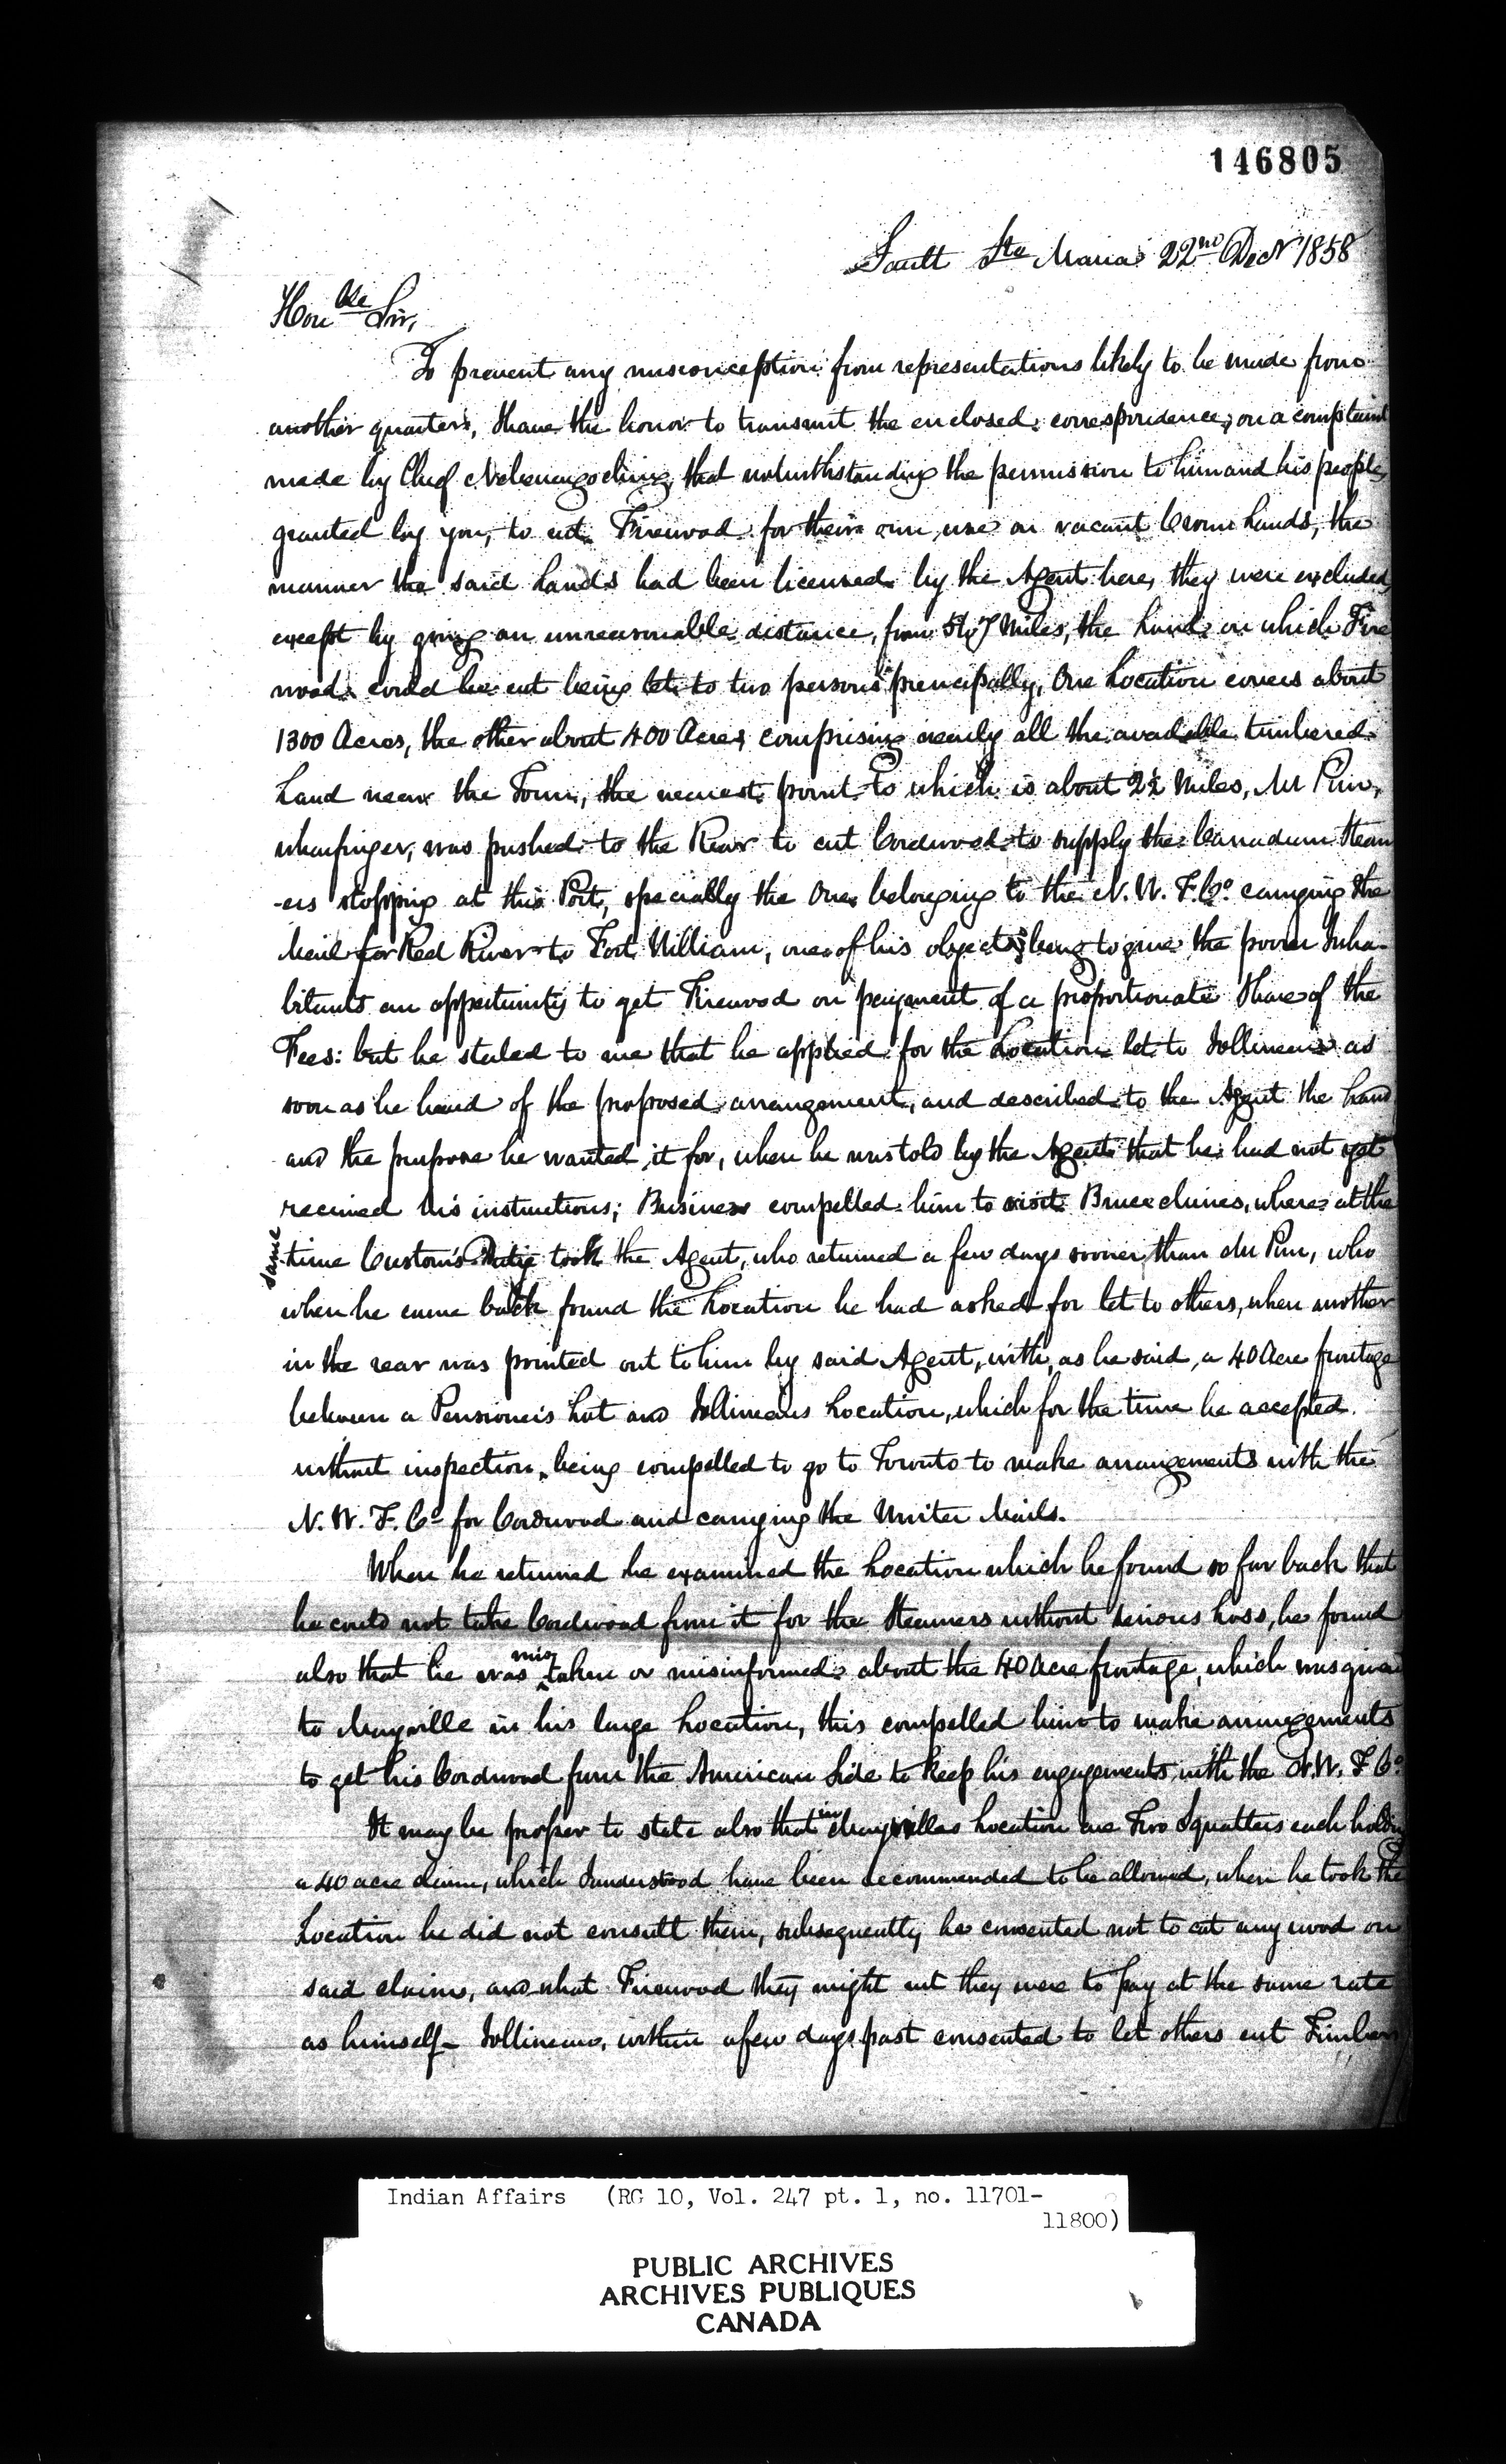 146805
Sault Ste Marie 22nd Decr 1858
Honble Sir,
To prevent any misconception from representations likely to be made from
another quarter, I have the honor to transmit the enclosed correspondence, on a complaint
made by Chief that notwithstanding the permission to him and his people
granted by you, to cut Firewood for their own use on vacant Crown Lands, the
manner the said Lands had been licensed by the Agent here, they were excluded,
except by going an unreasonable distance, from 5 to 7 Miles, the Land on which Fire
wood could be cut being let to two persons principally, One Location covers about
1300 Acres, the other about 400 Acres comprising nearly all the available timbered
Land near the Town, the nearest point to which is about 2½ Miles, Mr Pim,
wharfinger, was pushed to the Rear to cut Cordwood to supply the Canadian Steam
-ers stopping at this Port, specially the One belonging to the N. W. T. Co. carrying the
Mail for Red River to Fort William, one of his objects being to give the poorer Inha-
bitants an opportunity to get Firewood on payment of a proportionate Share of the
Fees: but he stated to me that he applied for the Location let to Jollineau as
soon as he heard of the proposed arrangement, and described to the Agent the Land
and the purpose he wanted it for, when he was told by the Agent that he had not yet
received his instructions; Business compelled him to visit Bruce Mines, where at the
same time Custom's Duty took the Agent, who returned a few days sooner than Mr Pim, who
when he came back found the Location he had asked for let to others, when another
in the rear was pointed out to him by said Agent, with, as he said, a 40 Acre frontage
between a Pensioner's Lot and Jollineau's Location, which for the time he accepted
without inspection, being compelled to go to Toronto to make arrangements with the
N. W. T. Co. for Cordwood and carrying the Winter Mails.
When he returned he examined the Location which he found so far back that
he could not take Cordwood from it for the Steamers without serious Loss, he found
also that he was mistaken or misinformed about the 40 Acre frontage, which was given
to Mayville in his large Location, this compelled him to make arrangements
to get his Cordwood from the American Side to keep his engagements with the N. W. T. Co.
It may be proper to state also that in Mayvilles Location are Two Squatters each holding
a 40 acre claim, which I understood have been recommended to be allowed, when he took the
Location he did not consult them, subsequently he consented not to cut any wood on
said claims, and what Firewood they might cut they were to pay at the same rate
as himself - Jollineau, within a few days past consented to let others cut Timber
Indian Affairs (RG 10, Vol. 247 pt. 1, no. 11701-
11800)
PUBLIC ARCHIVES
ARCHIVES PUBLIQUES
CANADA